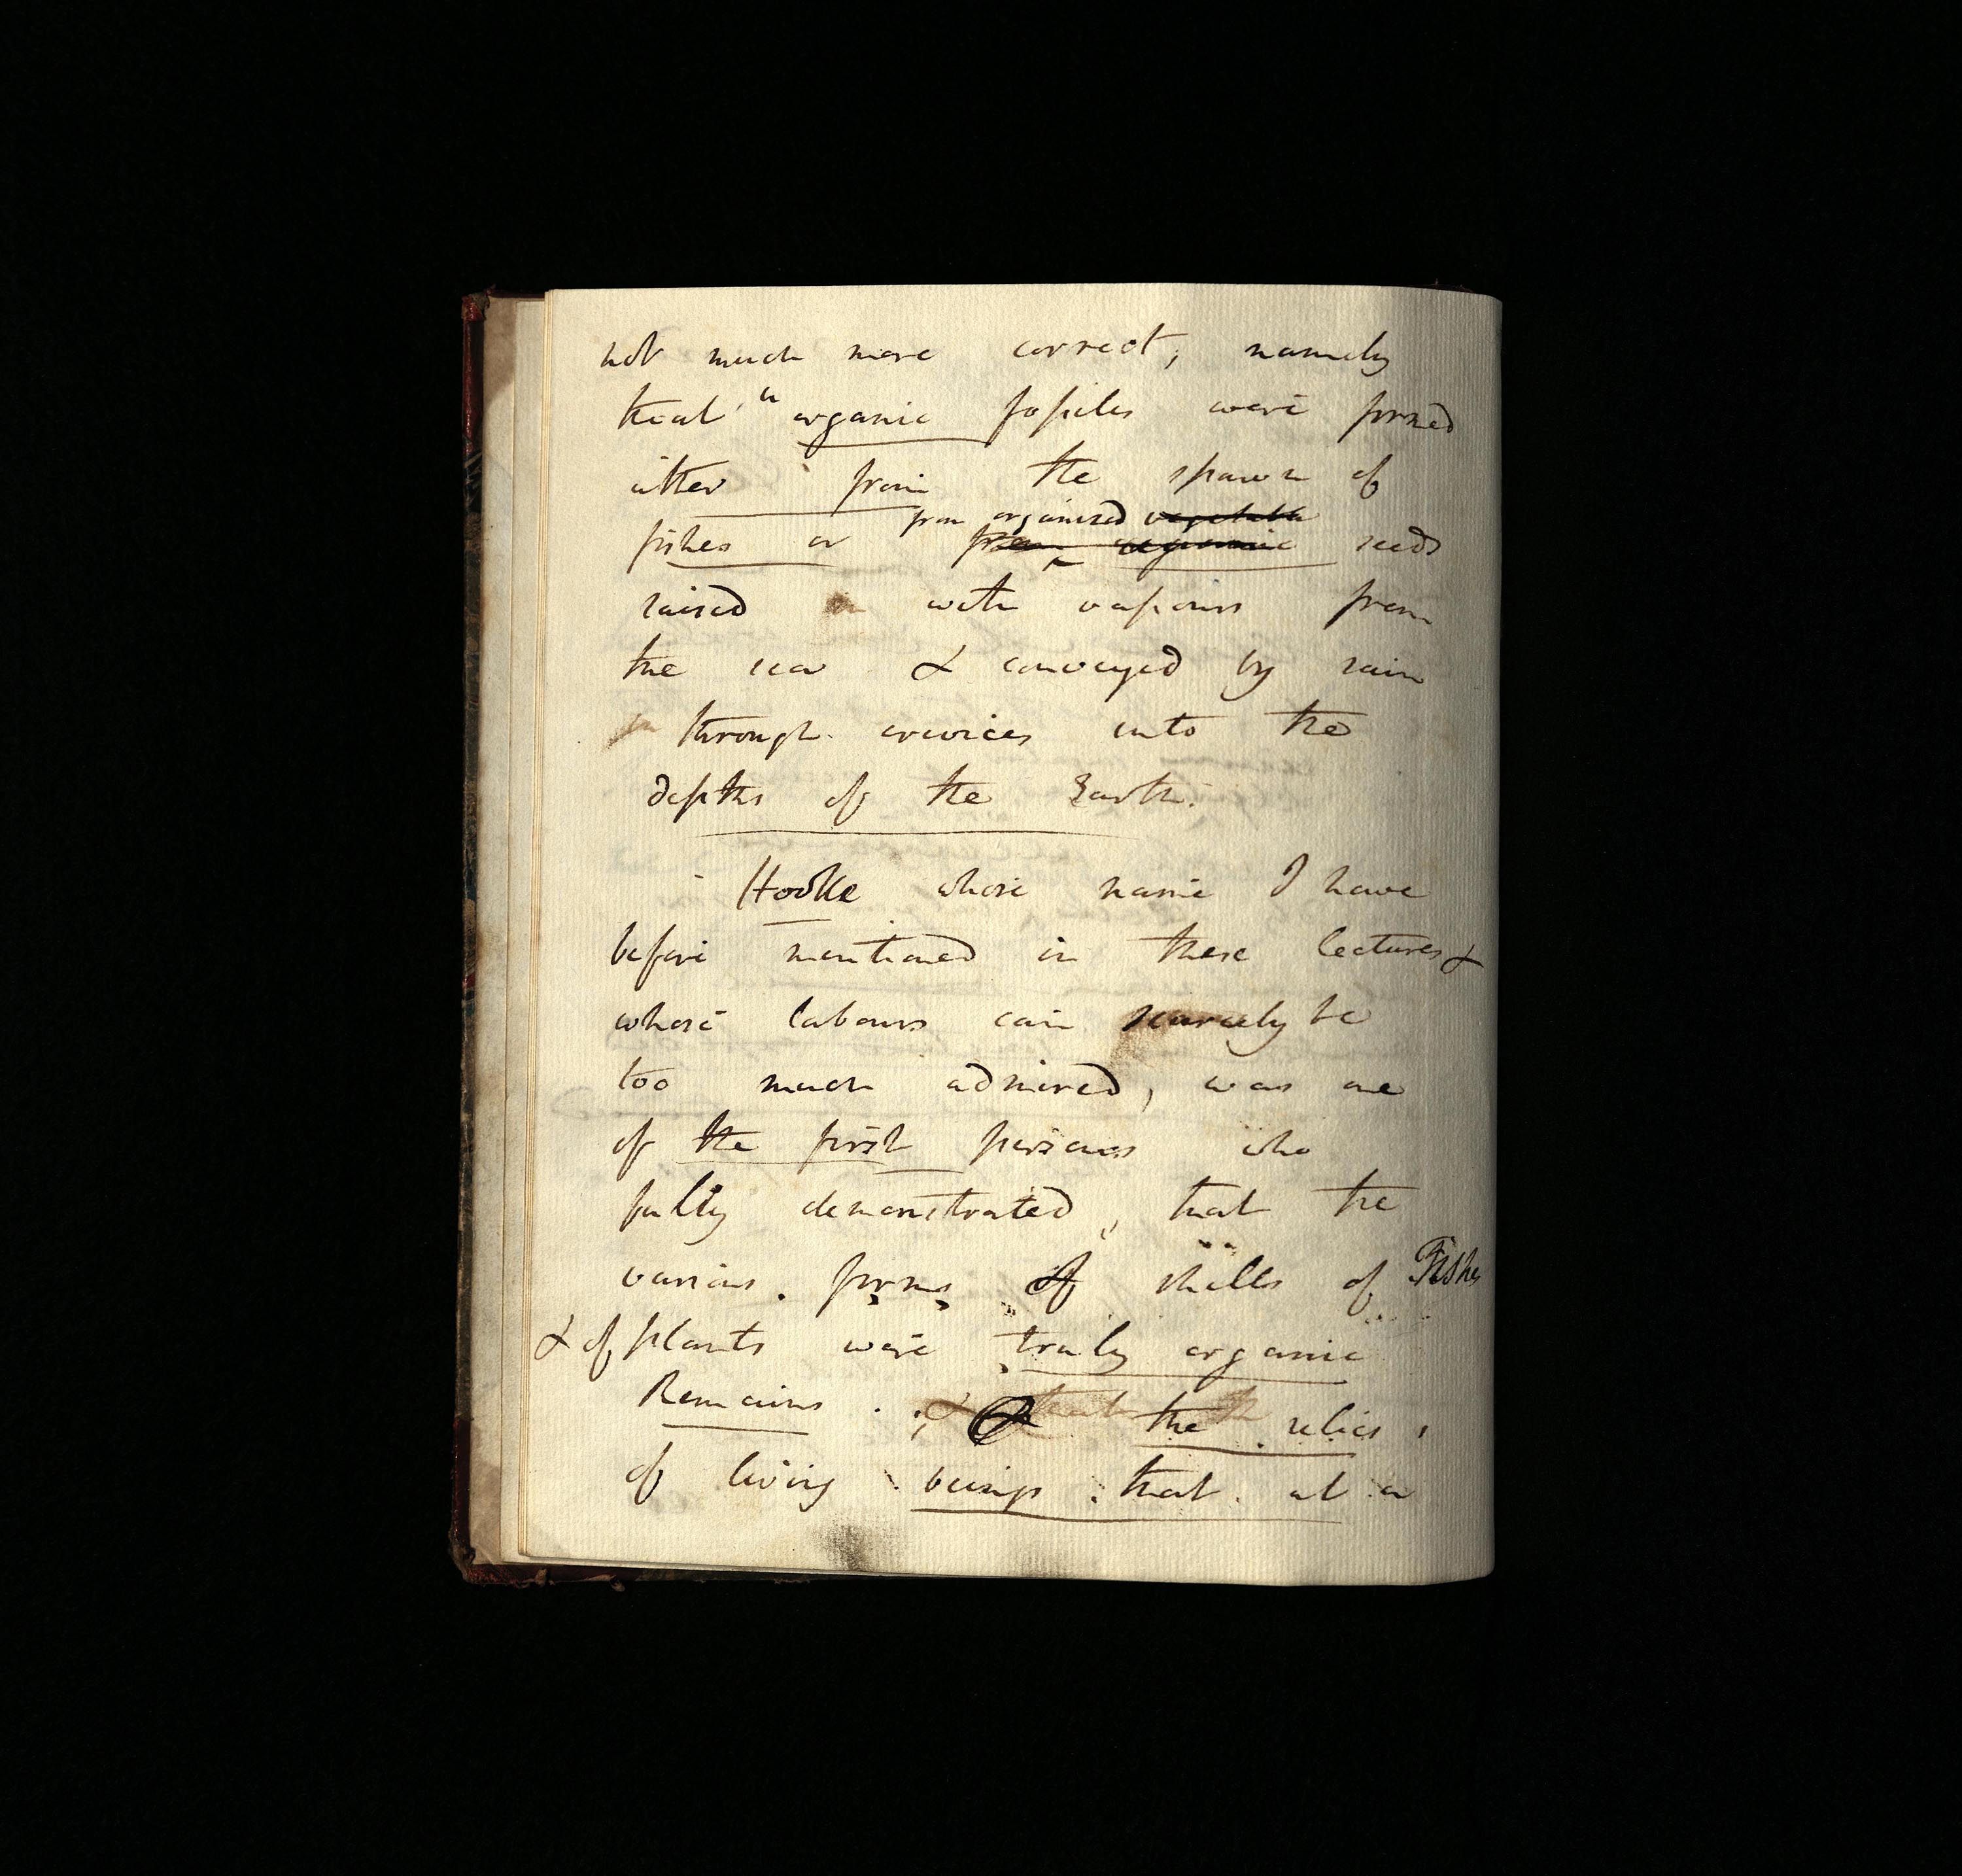 not much more correct, namely
that "organic fossiles were formed
either from the spawn of
from organized vegetable
fishes or from organic seeds
raised with vapours from
the sea & conveyed by rain
through crevices into the
depths of the Earth.
- Hooke whose name I have
before mentioned in these lectures &
whose labours can scarcely be
too much admired, was one
of the first persons who
fully demonstrated, that the
various forms of shells of Fishes
& of plants were truly organic
Remains. & that the relics
of living beings that at a